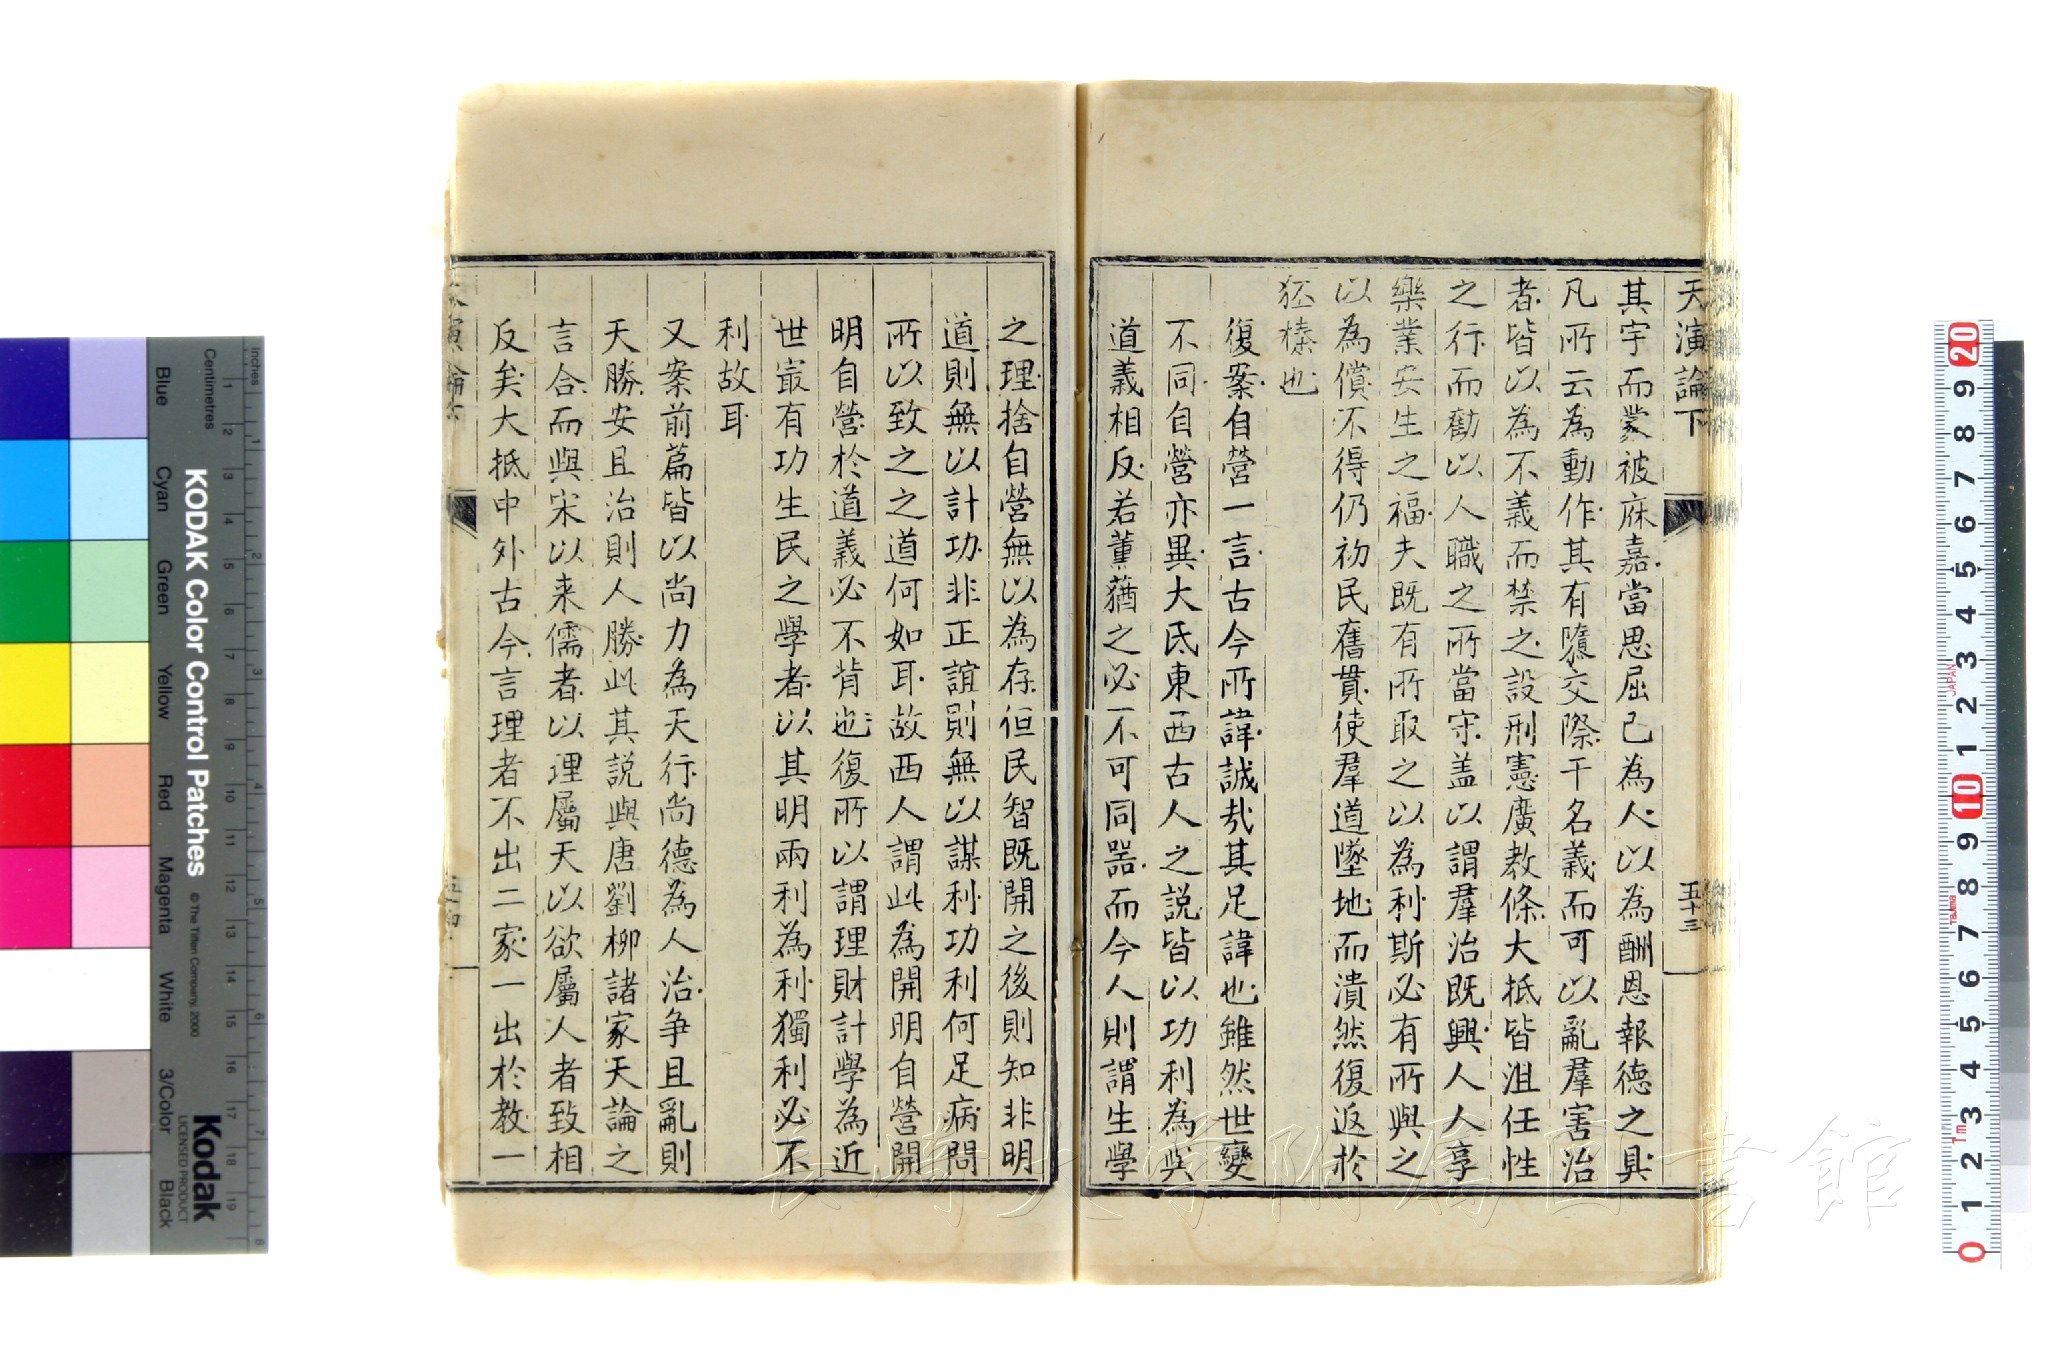 天演論下
五十三
其宇而蒙被庥嘉當思屈己為人以為酬恩報德之具
凡所云為動作其有隳交際干名義而可以亂羣害治
者皆以為不義而禁之設刑憲廣教條大抵皆沮任性
之行而勸以人職之所當守盖以謂羣治既興人人享
樂業安生之福夫既有所取之以為利斯必有所與之
以為償不得仍初民舊貫使羣道墜地而潰然復返於
狉榛也
復案自營一言古今所諱誠哉其足諱也雖然世變
不同自營亦異大氐東西古人之説皆以功利為與
道義相反若薰蕕之必不可同器而今人則謂生學
之理捨自營無以為存但民智既開之後則知非明
道則無以計功非正誼則無以謀利功利何足病問
所以致之之道何如耳故西人謂此為開明自營開
明自營於道義必不背也復所以謂理財計學為近
世最有功生民之學者以其明兩利為利獨利必不
利故耳
又案前篇皆以尚力為天行尚德為人治争且亂則
天勝安且治則人勝此其説與唐劉柳諸家天論之
言合而與宋以来儒者以理屬天以欲屬人者致相
反矣大抵中外古今言理者不出二家一出於教一
KODAK Color Control Patches
© The Tiffen Company, 2000
Kodak
LICENSED PRODUCT
inches
Centimetres
Blue
Cyan
Green
Yellow
Red
Magenta
White
3/Color
Black
長崎大学附属図書館
JAPAN
Tajima
Tm